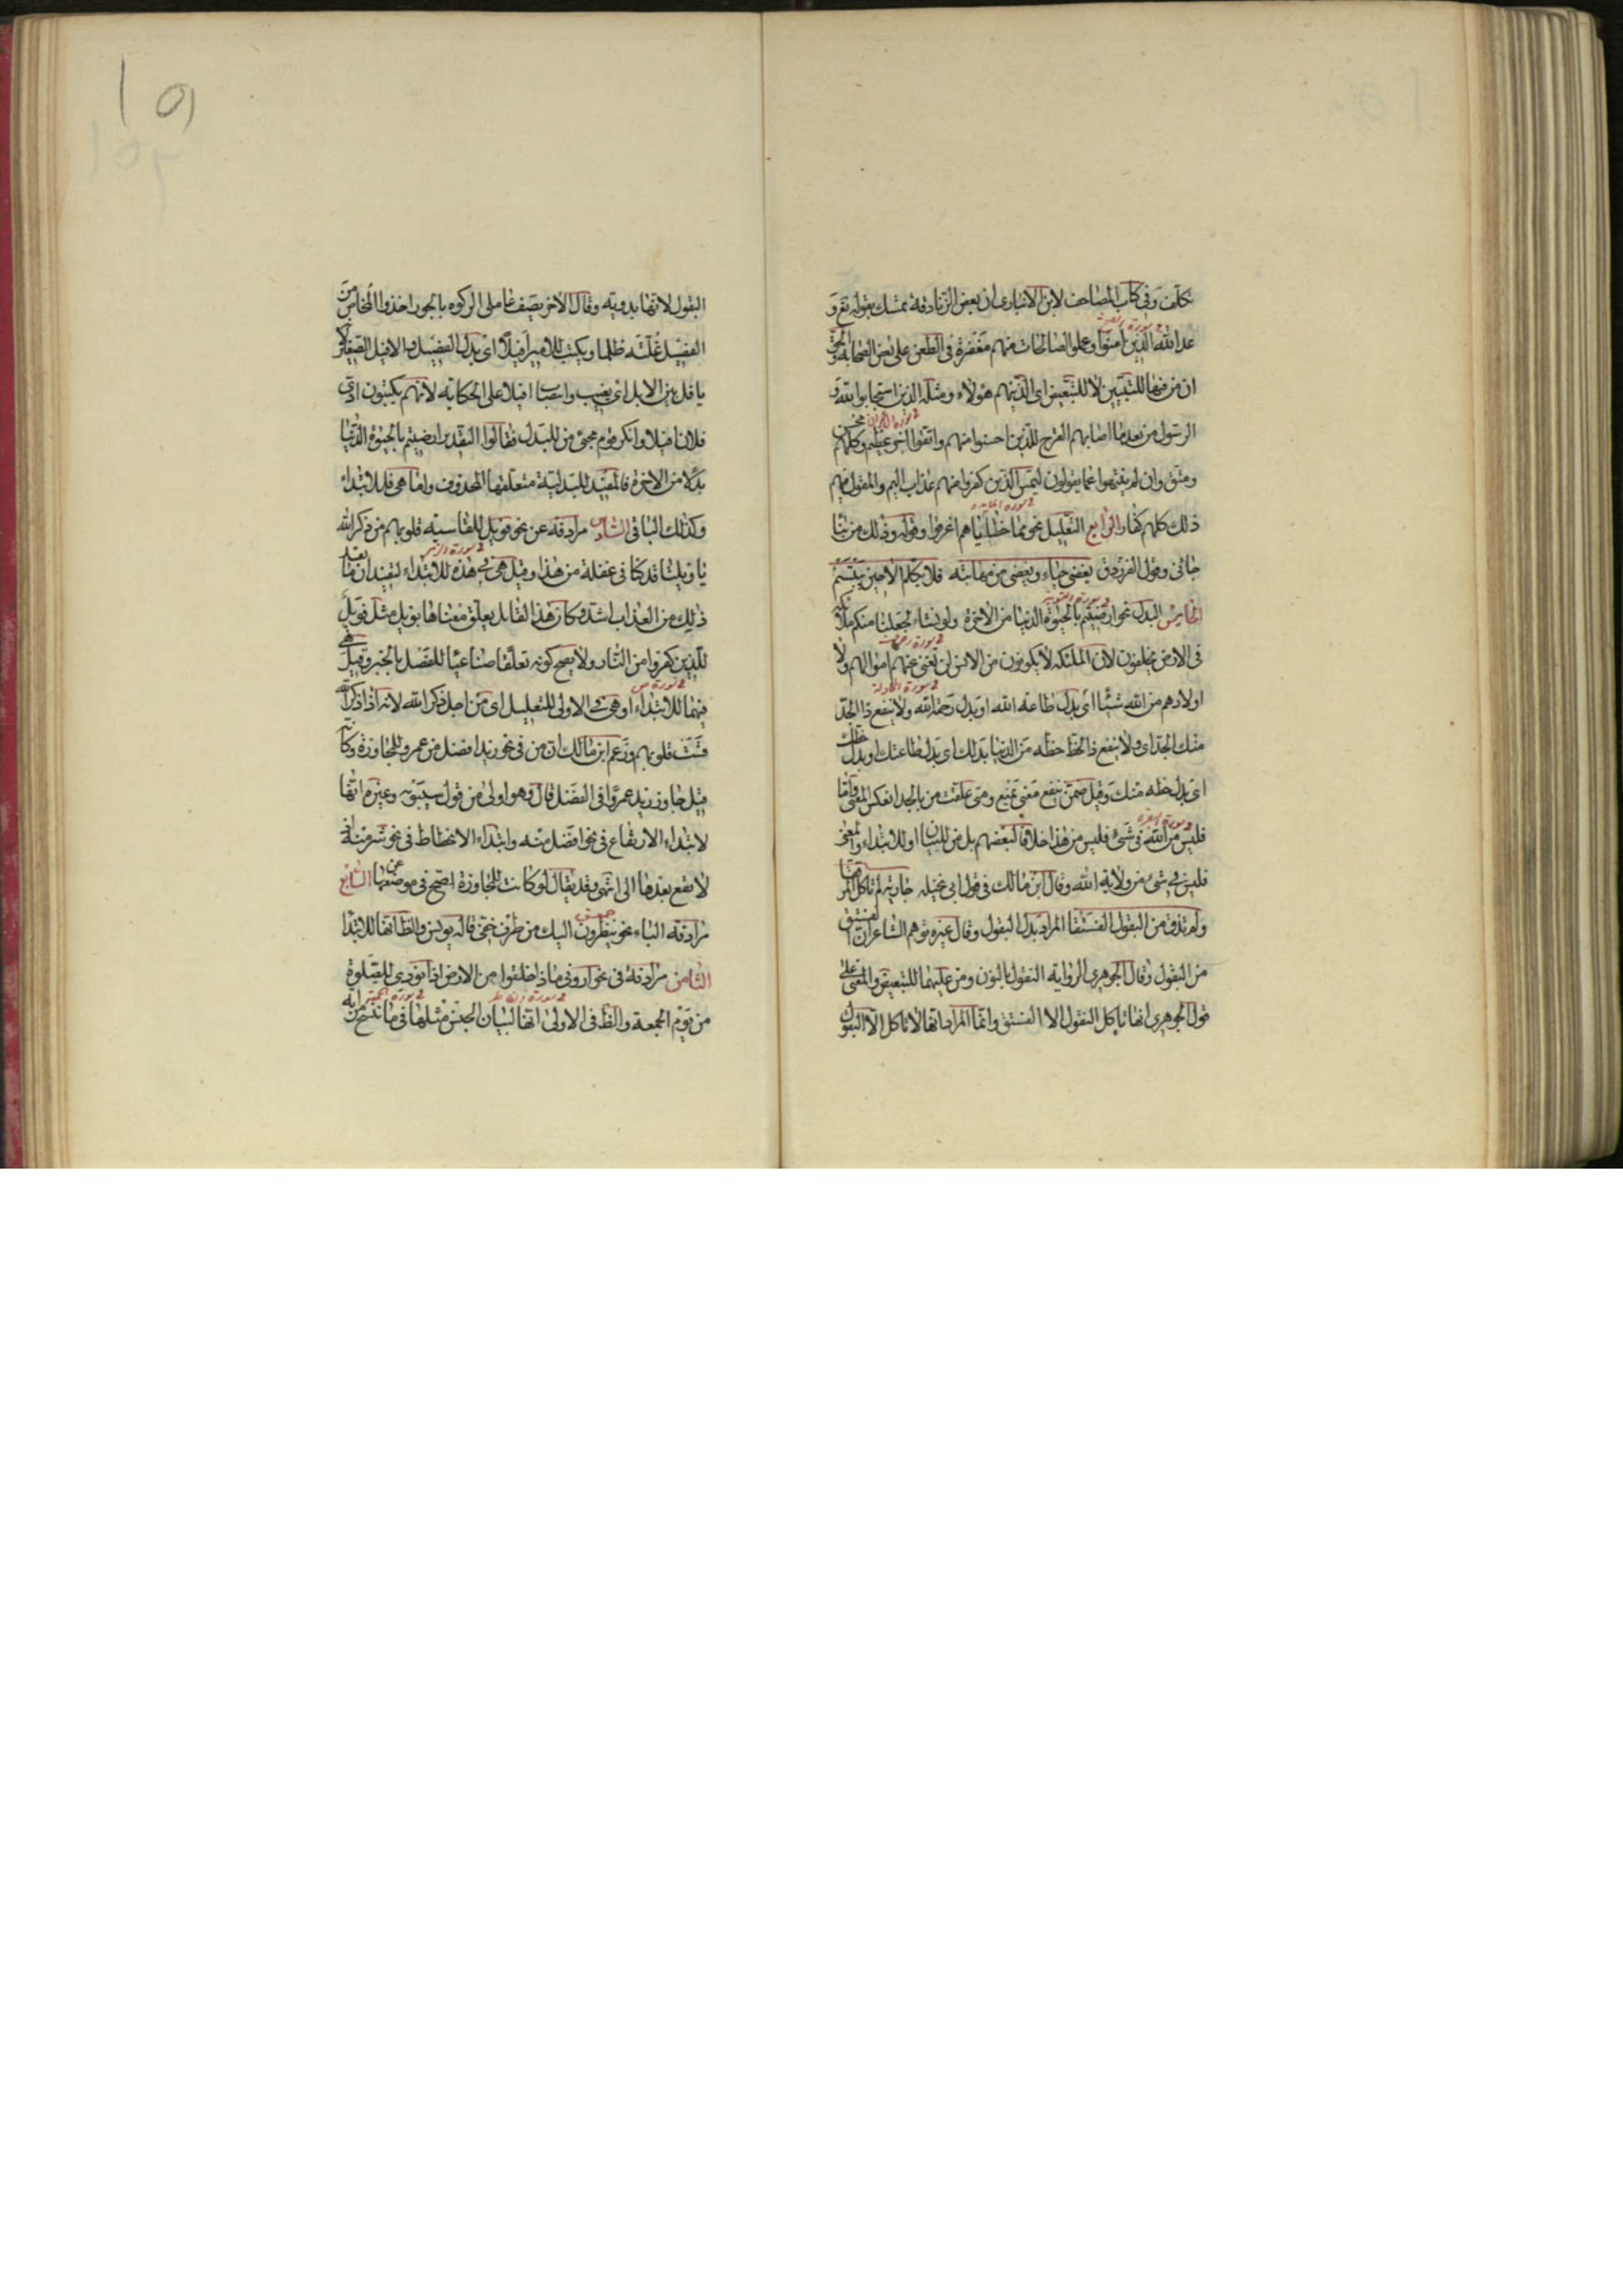 تكلف وفي كتاب المصاحف لابن الانباري ان بعض الزنادقة تمسك بقوله تع و
عد الله الذين آمنوا وعملوا الصالحات منهم مغفرة في الطعن على بعض الصحابة والحق
ان من فيها للتبيين لا للتبعيض اي الذين هم هؤلاء ومثله الذين استجابوا لله و
الرسول من بعد ما اصابهم القرح للذين احسنوا منهم واتقوا اجر عظيم وكلهم محسن
ومتق وان لم ينتهوا عما يقولون ليمسن الذين كفروا منهم عذاب اليم والمقول فيهم
ذلك كلهم كفار الرابع التعليل نحو مما خطاياهم اغرقوا وقوله وذلك من نبا
جائني وقول الفرزدق يغضي حياء ويغضى من مهابته فلا يكلم الا حين يبتسم
الخامس البدل نحو ارضيتم بالحيوة الدنيا من الاخرة ولو نشاء لجعلنا منكم ملائكة
في الارض يخلفون لان الملئكة لا يكونون من الانس لن تغني عنهم اموالهم ولا
اولادهم من الله شيئا اي بدل طاعة الله او بدل رحمة الله ولا ينفع ذا الجد
منك الجد اي ولا ينفع ذا الحظ حظه من الدنيا بذلك اي بدل طاعتك او بدل حظك
اي بدل حظه منك وقيل ضمن ينفع معنى يمنع ومتى علقت من بالجد انعكس المعنى واما
فليس من الله في شئ فليس من هذا خلافا لبعضهم بل من للبيان او للابتداء والمعنى
فليس في شئ من ولاية الله وقال ابن مالك في قول ابي نخيلة جارية لم تاكل المرققا
ولم تذق من البقول الفستقا المراد بدل البقول وقال غيره توهم الشاعر ان الفستق
من البقول وقال الجوهري الرواية النقول بالنون ومن عليهما للتبعيض والمعنى على
قول الجوهري انها تاكل النقول الا الفستق وانما المراد انها لا تاكل الا البقول
١٥١
البقول لانها بدوية وقال الاخر يصف عاملي الزكوة بالجور اخذوا المخاض من
الفصيل غلبة ظلما ويكتب للامير افيلا اي بدل الفصيل والافيل الصغير لانه
يافل بين الابل اي يغيب وانتصاب افيلا على الحكاية لانهم يكتبون ادى
فلان افيلا وانكر قوم مجئ من للبدل فقالوا التقدير ارضيتم بالحيوة الدنيا
بدلا من الاخرة فالمفيد للبدلية متعلقها المحذوف واما هي فللابتداء
وكذلك الباقي السادس مرادفة عن نحو فويل للقاسية قلوبهم من ذكر الله
يا ويلنا قد كنا في غفلة من هذا وقيل هي في هذه للابتداء لتفيد ان ما بعد
ذلك من العذاب اشد وكان هذا القايل يعلق معناها بويل مثل فويل
للذين كفروا من النار ولا يصح كونه تعلقا صناعيا للفصل بالخبر وقيل هي
فيهما للابتداء او هي في الاولى للتعليل اي من اجل ذكر الله لانه اذا ذكر الله
قست قلوبهم وزعم ابن مالك ان من في نحو زيد افضل من عمرو للمجاوزة وكانه
قيل جاوز زيد عمروا في الفضل قال وهو اولى من قول سيبويه وغيره انها
لابتداء الارتفاع في نحو افضل منه وابتداء الانحطاط في نحو شر منه اذ
لا يقع بعدها الى انتهى وقد يقال لو كانت للمجاوزة لصح في موضعها عن السابع
مرادفة الباء نحو ينظرون اليك من طرف خفي قاله يونس والظ انها للابتدا
الثامن مرادفة في نحو اروني ماذا خلقوا من الارض اذا نودي للصلوة
من يوم الجمعة والظ في الاولى انها لبيان الجنس مثلها في ما ننسخ من اية